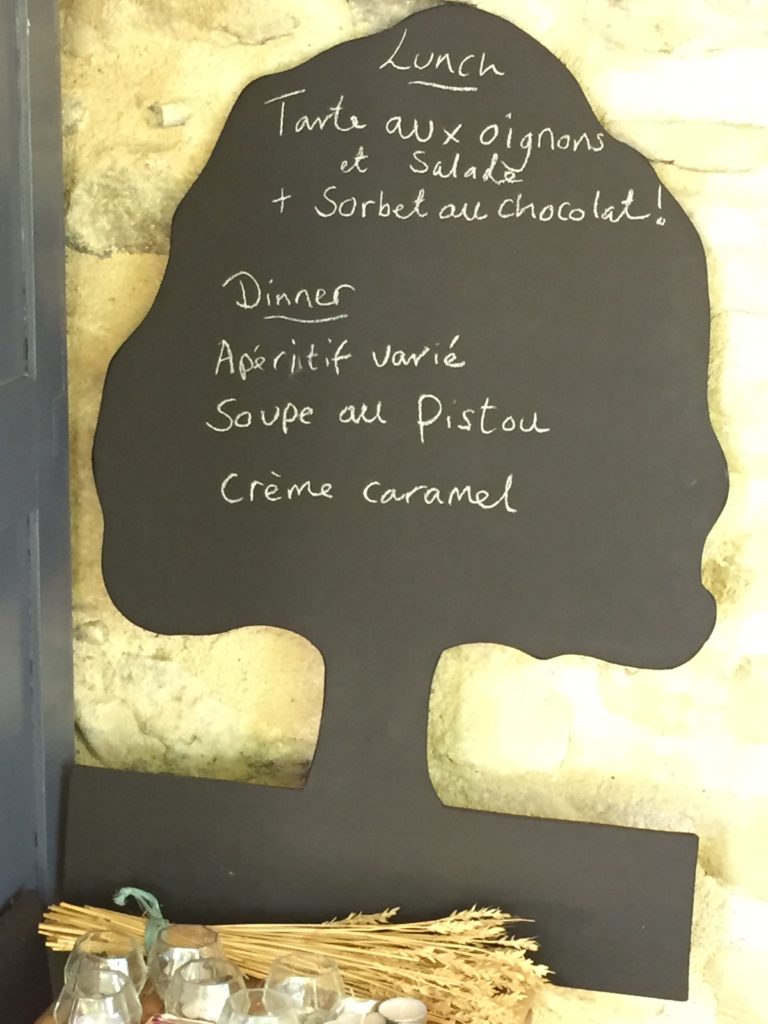 Lunch
Tarte aux oignons
et Salade
+ Sorbet au chocolat!
Dinner
Apéritif varié
Soupe au Pistou
Crème caramel